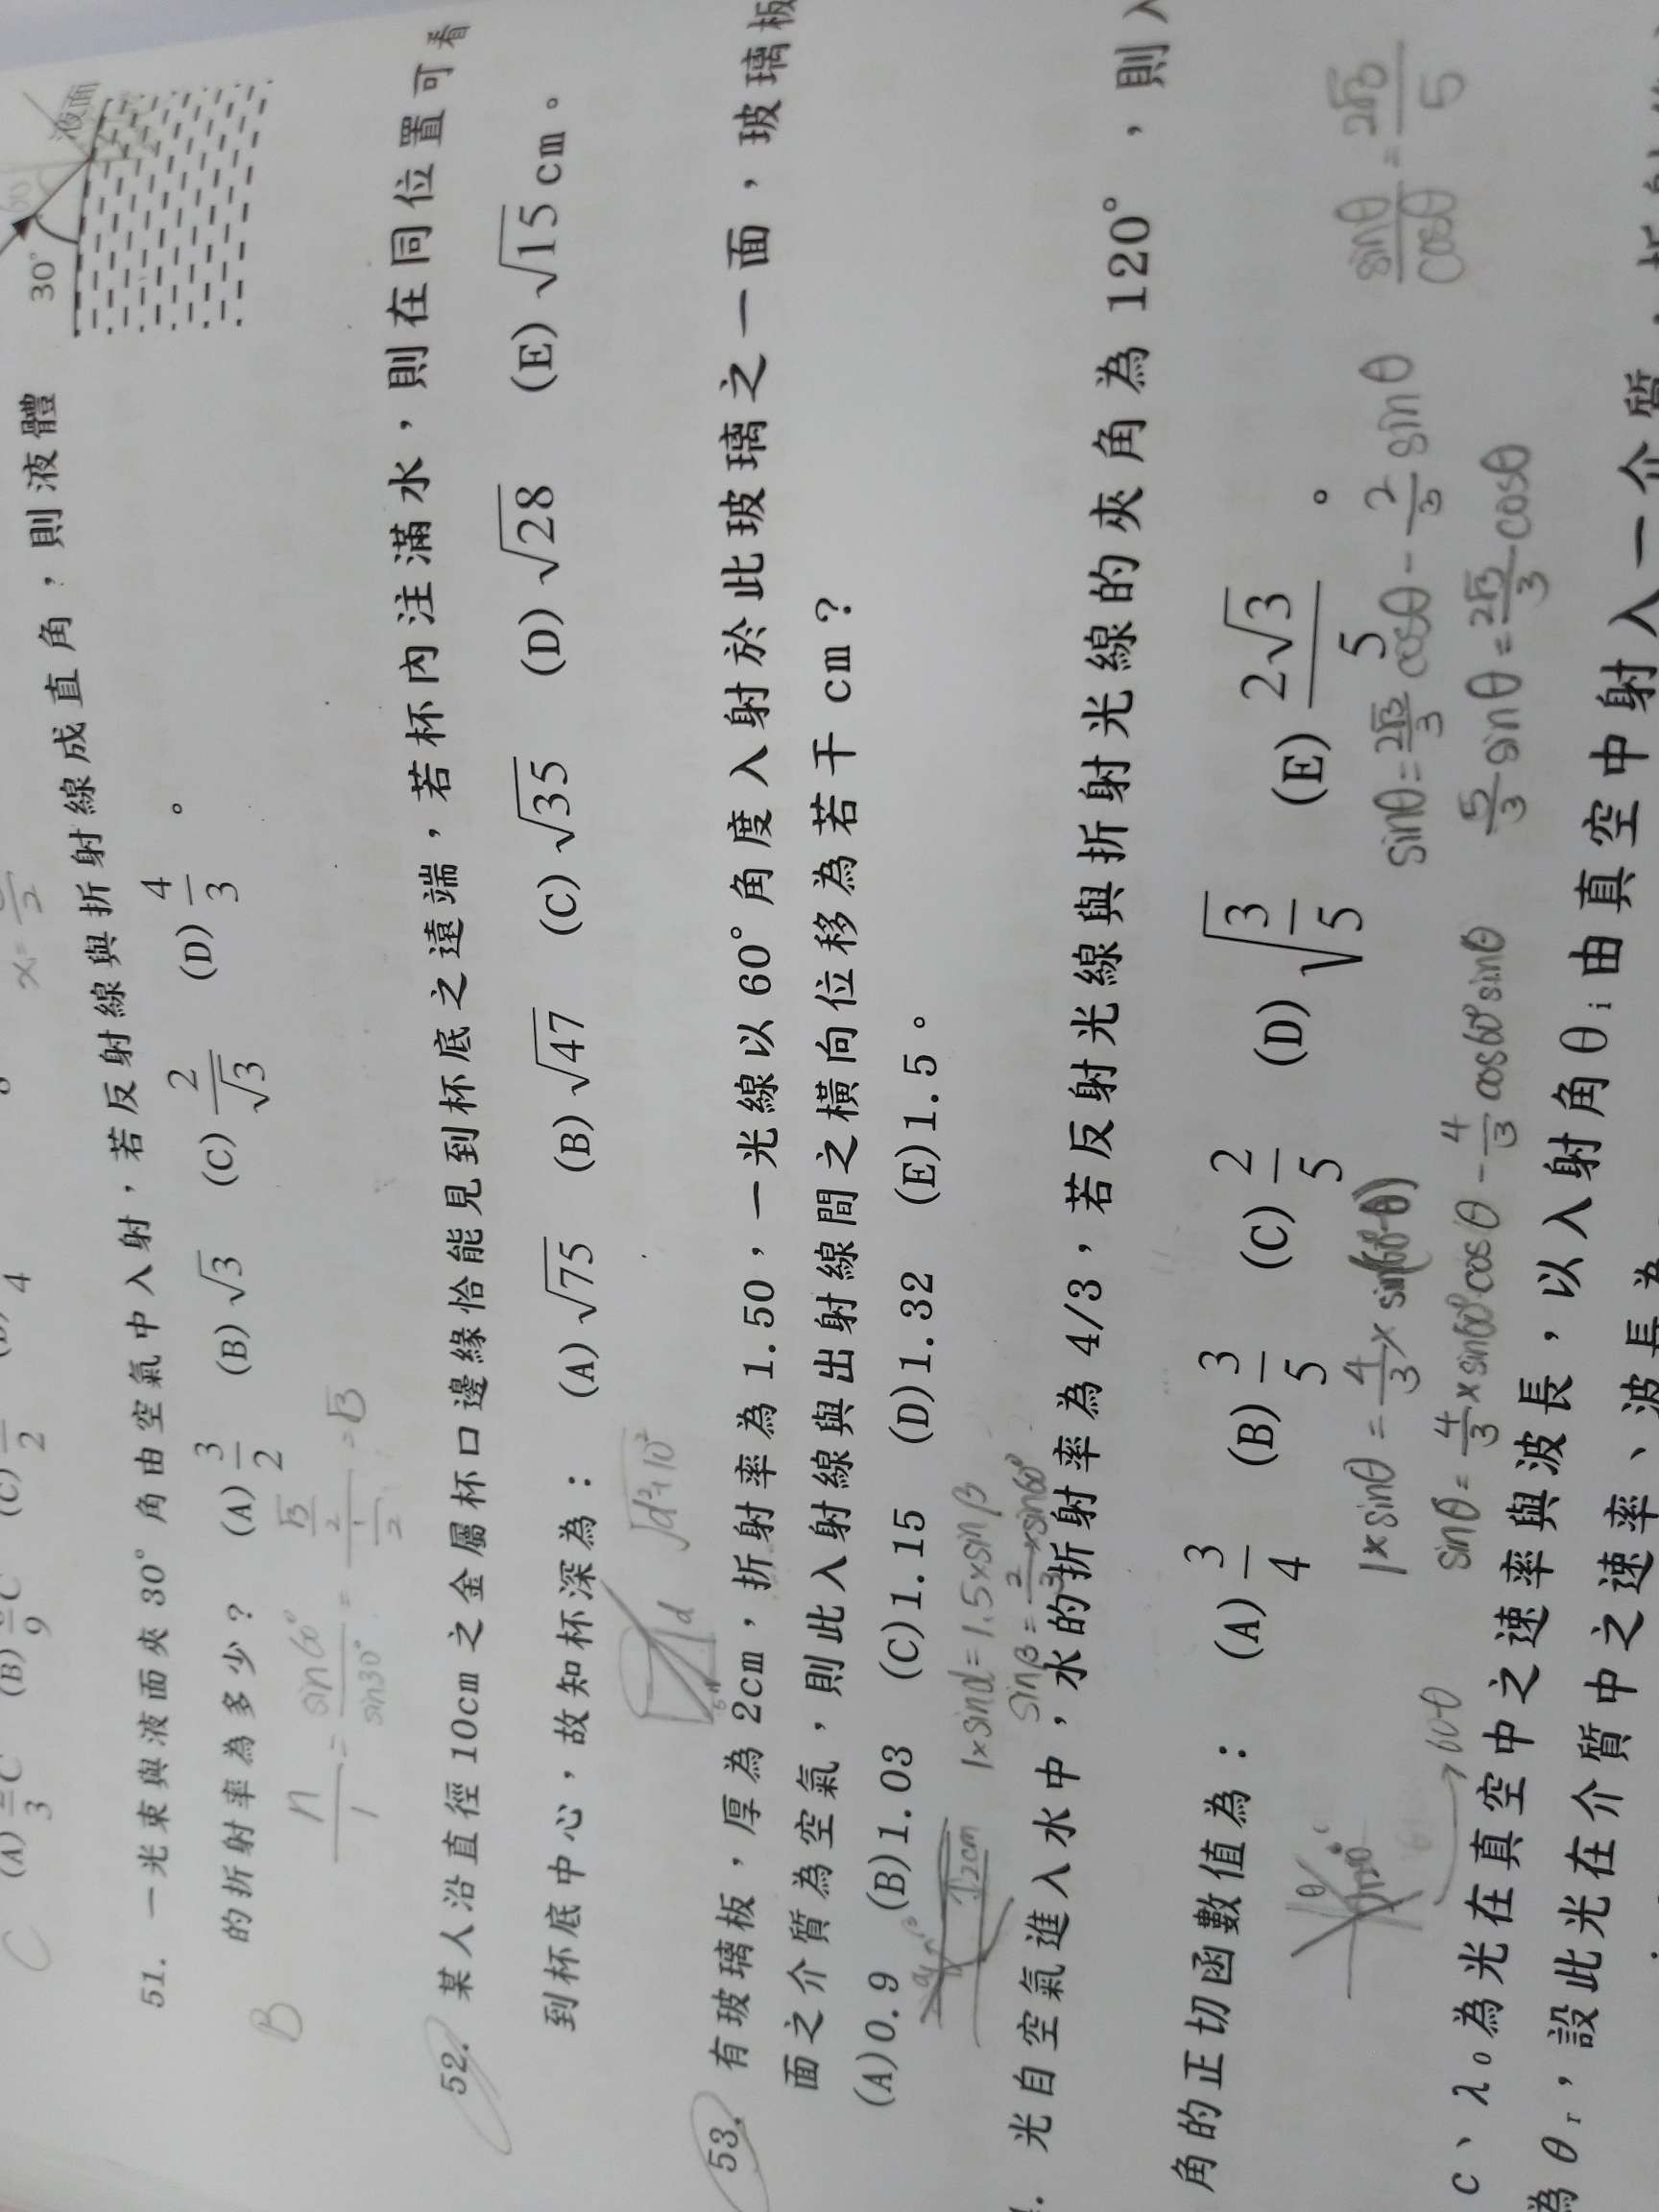 (A) C (B) C (C) 4
9
3
2
C
30°
液面
51. 一光束與液面夾30°角由空氣中入射，若反射線與折射線成直角，則液體
的折射率為多少？ (A) 3/2 (B) √3 (C) 2/√3 (D) 4/3 。
B
n/1 = sin60°/sin30° = (√3/2)/(1/2) = √3
52. 某人沿直徑10cm之金屬杯口邊緣恰能見到杯底之遠端，若杯內注滿水，則在同位置可看
到杯底中心，故知杯深為： (A) √75 (B) √47 (C) √35 (D) √28 (E) √15 cm。
d
√d²+10²
53. 有玻璃板，厚為2cm，折射率為1.50，一光線以60°角度入射於此玻璃之一面，玻璃板
面之介質為空氣，則此入射線與出射線間之橫向位移為若干cm？
(A)0.9 (B)1.03 (C)1.15 (D)1.32 (E)1.5。
2cm
1×sinα=1.5×sinβ
sinβ=2/3×sin60°
光自空氣進入水中，水的折射率為4/3，若反射光線與折射光線的夾角為120°，則入
角的正切函數值為： (A) 3/4 (B) 3/5 (C) 2/5 (D) √(3/5) (E) 2√3/5 。
θ
120°
60-θ
1×sinθ = 4/3 × sin(60°-θ)
sinθ = 4/3 × sin60°cosθ - 4/3 cos60°sinθ
sinθ = 2√3/3 cosθ - 2/3 sinθ
5/3 sinθ = 2√3/3 cosθ
sinθ/cosθ = 2√3/5
c、λ₀為光在真空中之速率與波長，以入射角θᵢ由真空中射入一介質，折射
為θᵣ，設此光在介質中之速率、波長為